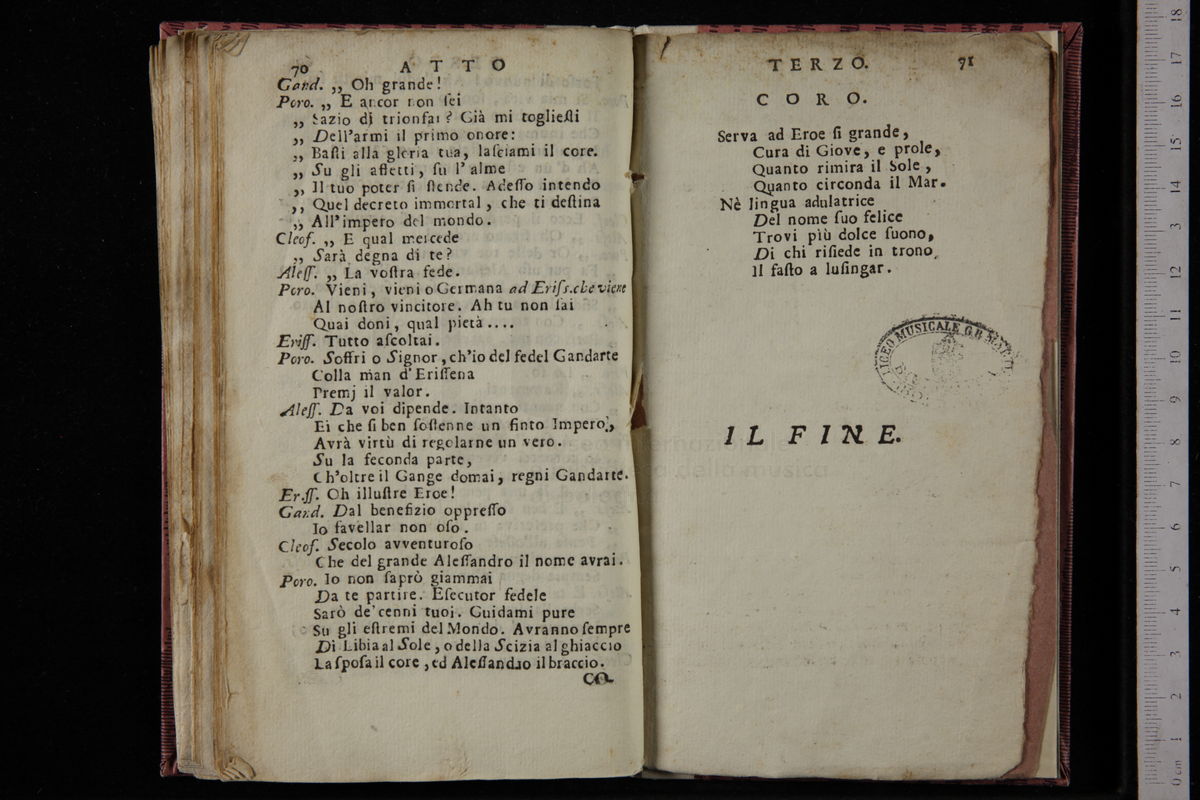 70 ATTO
Gand. ,, Oh grande!
Poro. ,, E ancor non ſei
,, Sazio di trionfai? Già mi toglieſti
,, Dell'armi il primo onore:
,, Baſti alla gloria tua, laſciami il core.
,, Su gli affetti, ſu l'alme
,, Il tuo poter ſi ſtende. Adeſſo intendo
,, Quel decreto immortal, che ti deſtina
,, All'impero del mondo.
Cleof. ,, E qual mercede
,, Sarà degna di te?
Aleſſ. ,, La voſtra fede.
Poro. Vieni, vieni o Germana ad Eriſs.che viene
Al noſtro vincitore. Ah tu non ſai
Quai doni, qual pietà....
Eriſſ. Tutto aſcoltai.
Poro. Soffri o Signor, ch'io del fedel Gandarte
Colla man d'Eriſſena
Premj il valor.
Aleſſ. Da voi dipende. Intanto
Ei che ſi ben ſoſtenne un finto Impero,
Avrà virtù di regolarne un vero.
Su la feconda parte,
Ch'oltre il Gange domai, regni Gandarte.
Er.ſſ. Oh illuſtre Eroe!
Gand. Dal benefizio oppreſſo
Io favellar non oſo.
Cleof. Secolo avventuroſo
Che del grande Aleſſandro il nome avrai.
Poro. Io non ſaprò giammai
Da te partire. Eſecutor fedele
Sarò de'cenni tuoi. Guidami pure
Su gli eſtremi del Mondo. Avranno ſempre
Di Libia al Sole, o della Scizia al ghiaccio
La ſpoſa il core, ed Aleſſandro il braccio.
CO-
TERZO. 71
CORO.
Serva ad Eroe ſi grande,
Cura di Giove, e prole,
Quanto rimira il Sole,
Quanto circonda il Mar.
Nè lingua adulatrice
Del nome ſuo felice
Trovi più dolce ſuono,
Di chi riſiede in trono
Il faſto a luſingar.
LICEO MUSICALE G.B. MARTINI
IL FINE.
internazionale
della musica
0 cm 1 2 3 4 5 6 7 8 9 10 11 12 13 14 15 16 17 18